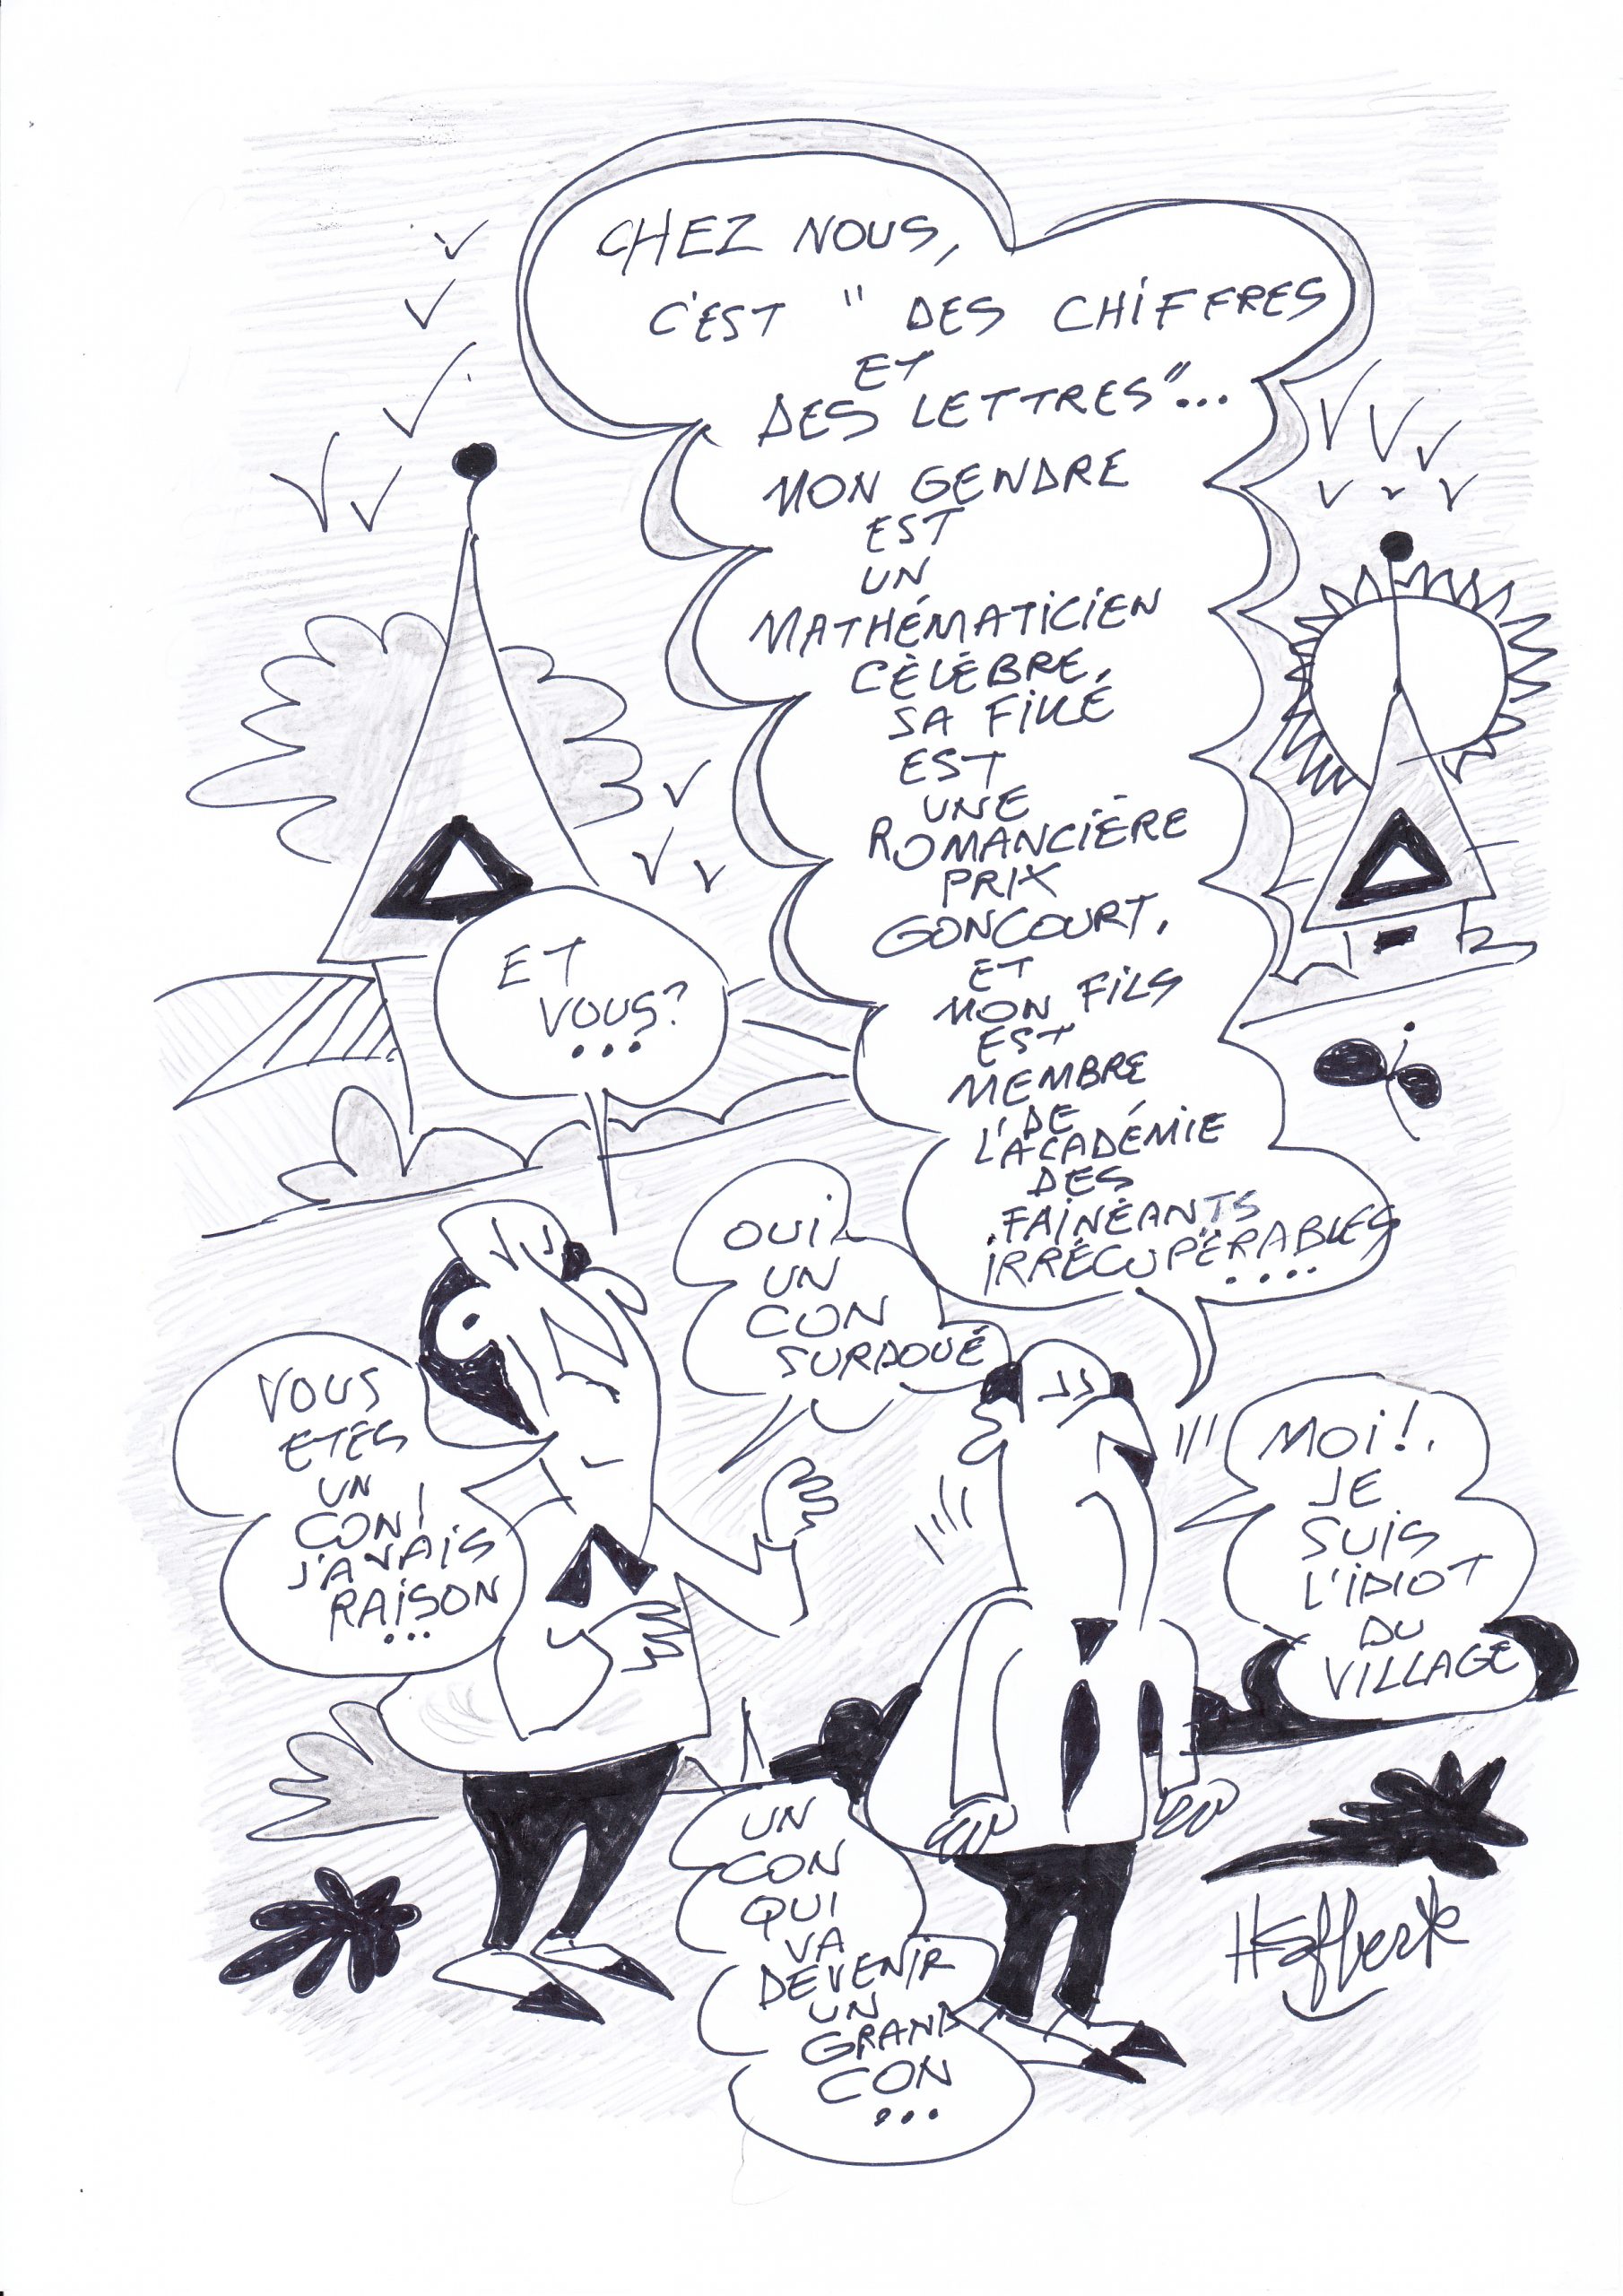 CHEZ NOUS,
C'EST " DES CHIFFRES
ET
DES LETTRES"...
MON GENDRE
EST
UN
MATHÉMATICIEN
CÉLÈBRE,
SA FILLE
EST
UNE
ROMANCIÈRE
PRIX
GONCOURT.
ET
MON FILS
EST
MEMBRE
DE
L'ACADÉMIE
DES
FAINÉANTS
IRRÉCUPÉRABLES
....
ET
VOUS?
...
MOI!.
JE
SUIS
L'IDIOT
DU
VILLAGE
VOUS
ETES
UN
CON!
J'AVAIS
RAISON
...
OUI
UN
CON
SURDOUÉ
UN
CON
QUI
VA
DEVENIR
UN
GRAND
CON
...